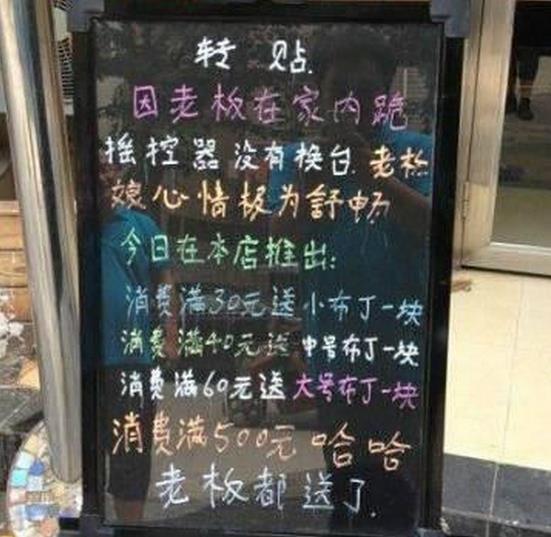 转贴.
因老板在家内跪
摇控器没有换台.老板
娘心情极为舒畅
今日在本店推出:
消费满30元送小布丁一块
消费满40元送中号布丁一块
消费满60元送大号布丁一块
消费满500元哈哈
老板都送了.